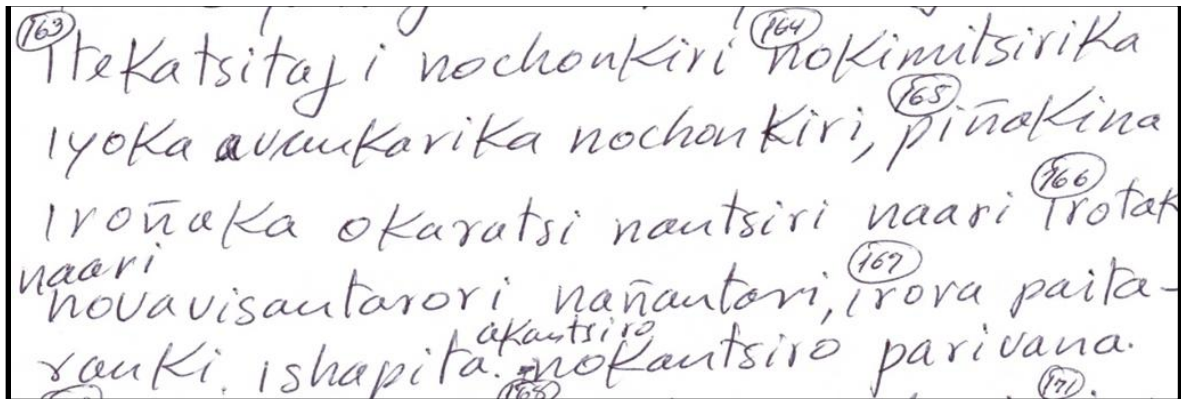 (163) Itekatsitaji nochonkiri (164) nokimitsirika
iyoka nochonkiri, (165) piñakina
iroñaka okaratsi nantsiri naari (166) irotak
naari
novavisantarori nañantari, (167) irora paita-
akantsiro
ranki. ishapita. nokantsiro parivana.
(168) (171).